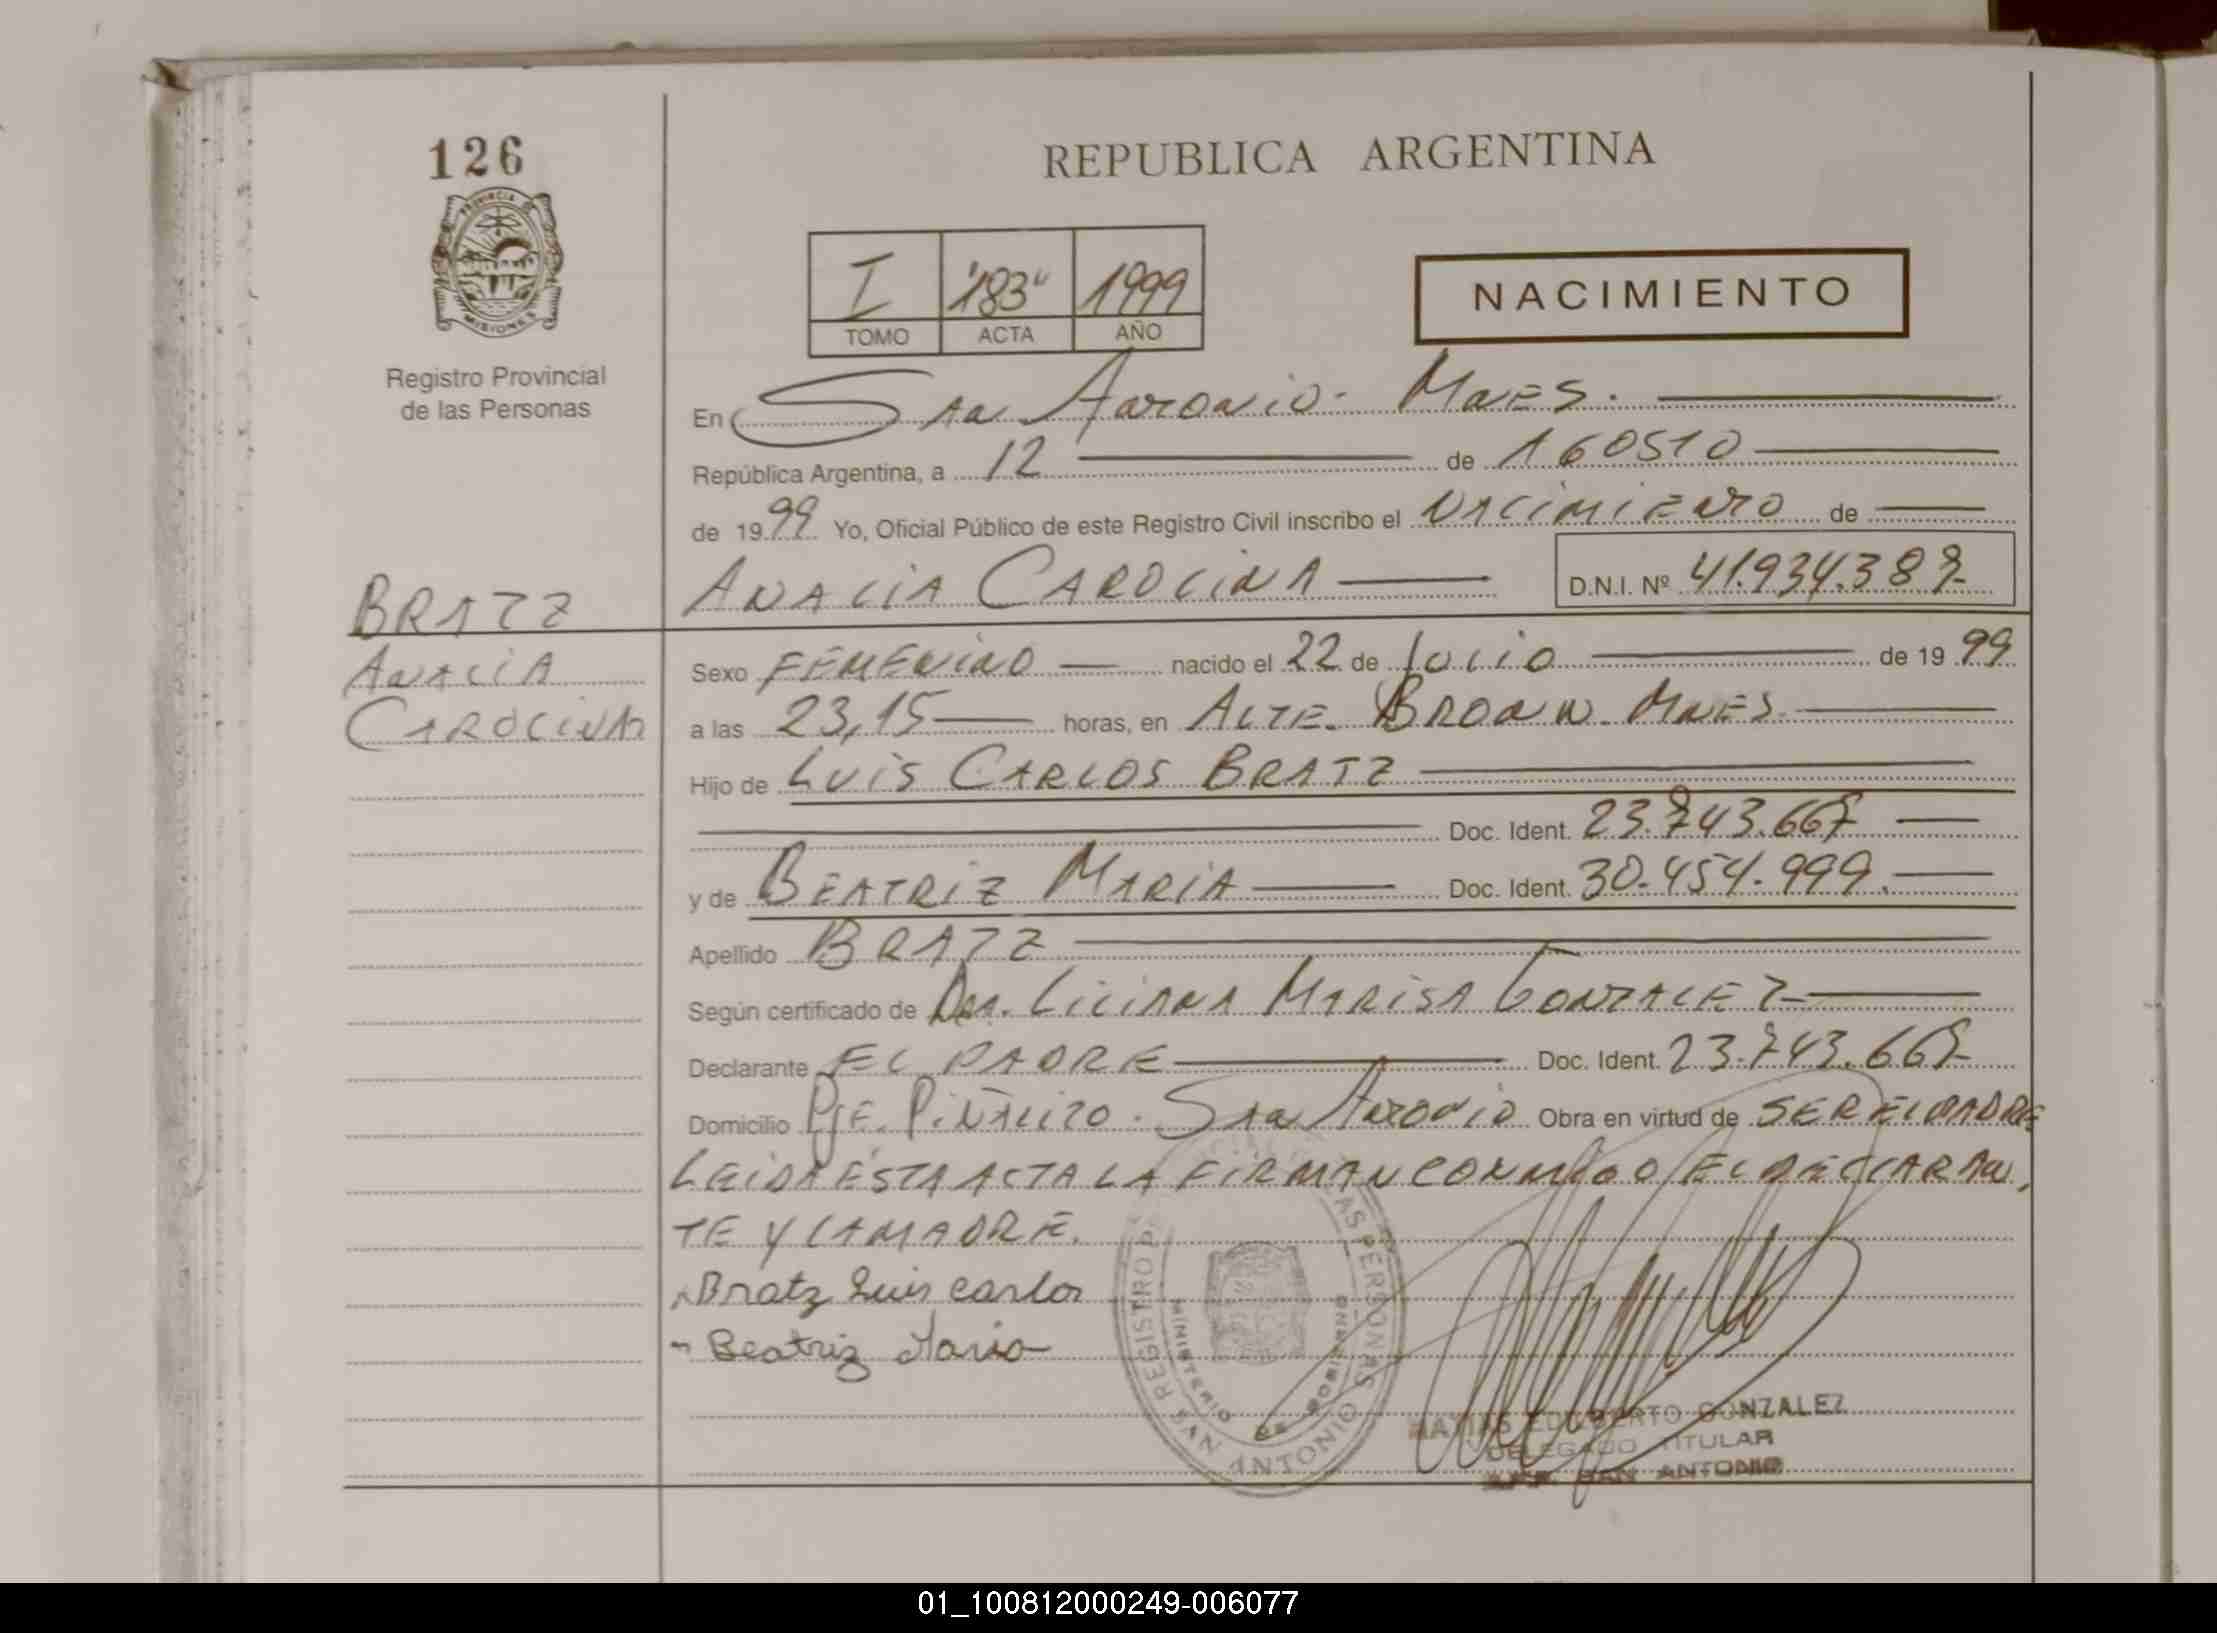 126
PROVINCIA DE
MISIONES
Registro Provincial
de las Personas
REPUBLICA ARGENTINA
I "183" 1999
TOMO ACTA AÑO
NACIMIENTO
En San Antonio - Mnes.
República Argentina, a 12 de AGOSTO
de 1999 Yo, Oficial Público de este Registro Civil inscribo el NACIMIENTO de
ANALIA CAROLINA D.N.I. Nº 41.934.387-
BRATZ
ANALIA
CAROLINA
Sexo FEMENINO nacido el 22 de Julio de 1999
a las 23,15 horas, en ALTE. BROWN. MNES.
Hijo de LUIS CARLOS BRATZ
Doc. Ident. 23.743.667
y de BEATRIZ MARIA Doc. Ident. 30.454.999.
Apellido BRATZ
Según certificado de Dra. LILIANA MARISA GONZALEZ
Declarante EL PADRE Doc. Ident. 23.743.667-
Domicilio PJE. PIÑALITO - San Antonio Obra en virtud de SER EL PADRE
LEIDA ESTA ACTA LA FIRMAN CONMIGO EL DECLARAN-
TE Y LA MADRE.
Bratz Luis Carlos
- Beatriz Maria
REGISTRO LAS PERSONAS
MINISTERIO DE GOBIERNO
SAN ANTONIO
MATIAS EDILBERTO GONZALEZ
DELEGADO TITULAR
SAN ANTONIO
01_100812000249-006077